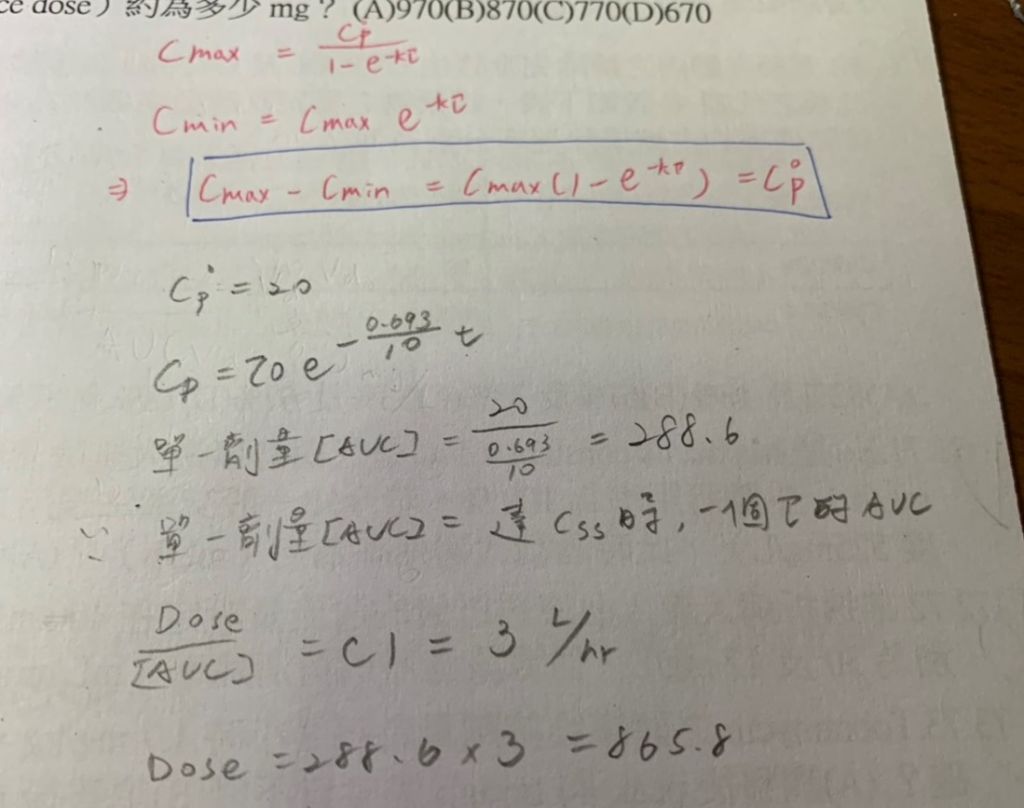 ce dose）約為多少 mg？ (A)970(B)870(C)770(D)670
Cmax = Cp° / 1 - e^-kτ
Cmin = Cmax e^-kτ
⇒ Cmax - Cmin = Cmax (1 - e^-kτ) = Cp°
Cp° = 20
Cp = 20 e^-(0.693/10) t
單一劑量 [AUC] = 20 / (0.693/10) = 288.6
∵ 單一劑量 [AUC] = 達 Css 時, 一個 τ 的 AUC
Dose / [AUC] = Cl = 3 L/hr
Dose = 288.6 × 3 = 865.8